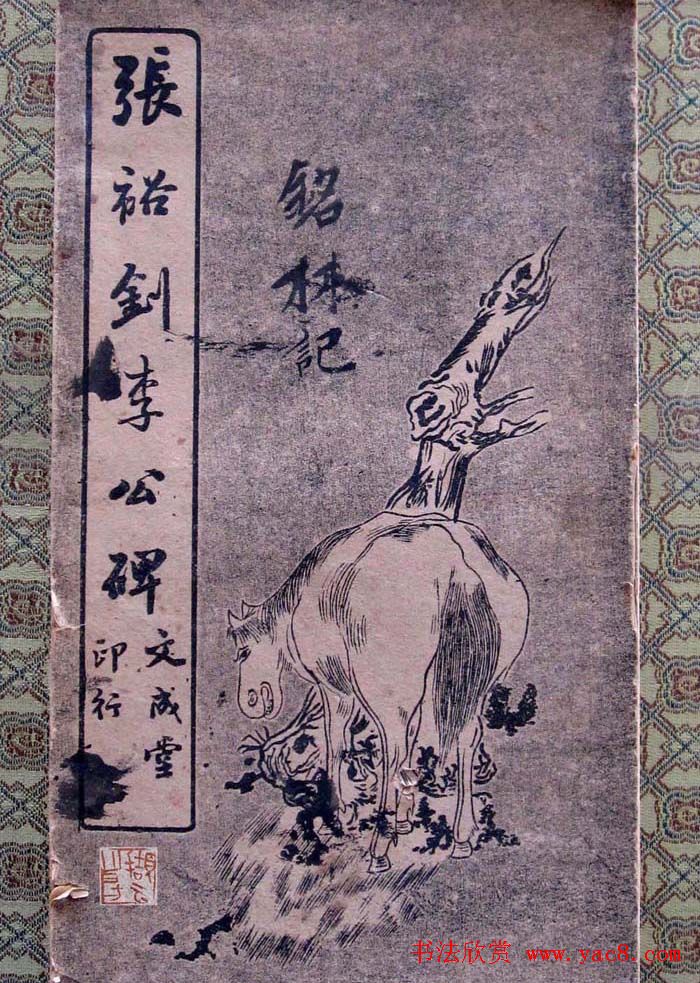 張裕釗李公碑
文成堂
印行
銘林記
书法欣赏 www.yac8.com